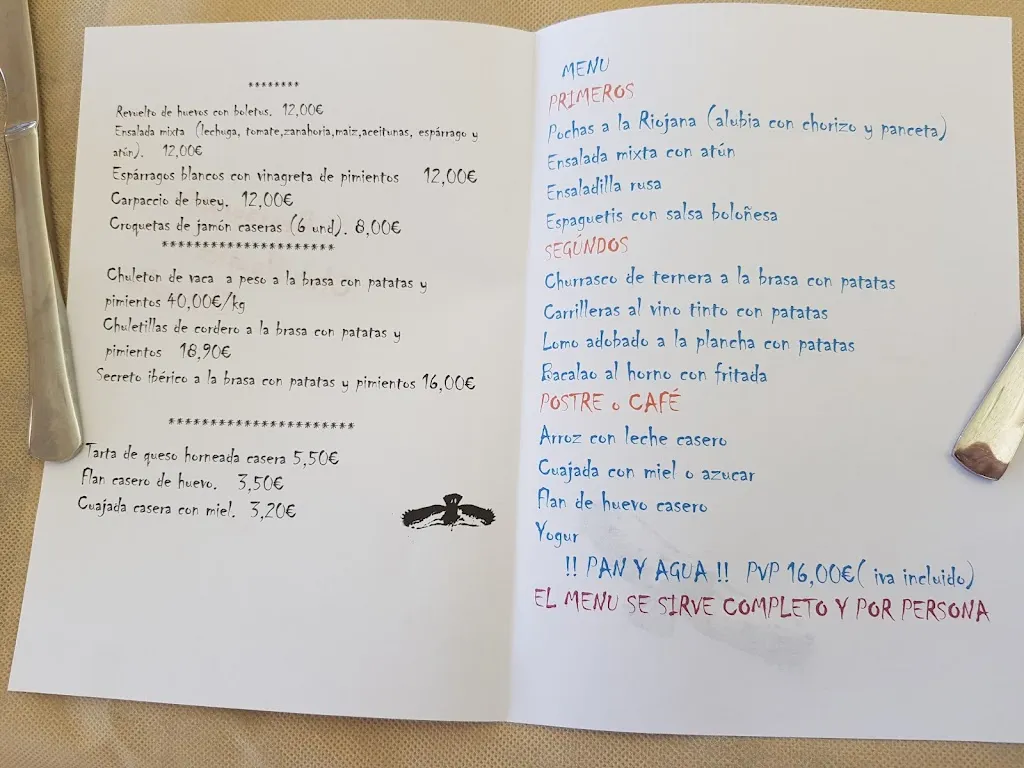 ********
Revuelto de huevos con boletus. 12,00€
Ensalada mixta (lechuga, tomate,zanahoria,maiz,aceitunas, espárrago y
atún). 12,00€
Espárragos blancos con vinagreta de pimientos 12,00€
Carpaccio de buey. 12,00€
Croquetas de jamón caseras (6 und). 8,00€
*********************
Chuleton de vaca a peso a la brasa con patatas y
pimientos 40,00€/kg
Chuletillas de cordero a la brasa con patatas y
pimientos 18,90€
Secreto ibérico a la brasa con patatas y pimientos 16,00€
*********************
Tarta de queso horneada casera 5,50€
Flan casero de huevo. 3,50€
Cuajada casera con miel. 3,20€
MENU
PRIMEROS
Pochas a la Riojana (alubia con chorizo y panceta)
Ensalada mixta con atún
Ensaladilla rusa
Espaguetis con salsa boloñesa
SEGÚNDOS
Churrasco de ternera a la brasa con patatas
Carrilleras al vino tinto con patatas
Lomo adobado a la plancha con patatas
Bacalao al horno con fritada
POSTRE o CAFÉ
Arroz con leche casero
Cuajada con miel o azucar
Flan de huevo casero
Yogur
!! PAN Y AGUA !! PVP 16,00€( iva incluido)
EL MENU SE SIRVE COMPLETO Y POR PERSONA